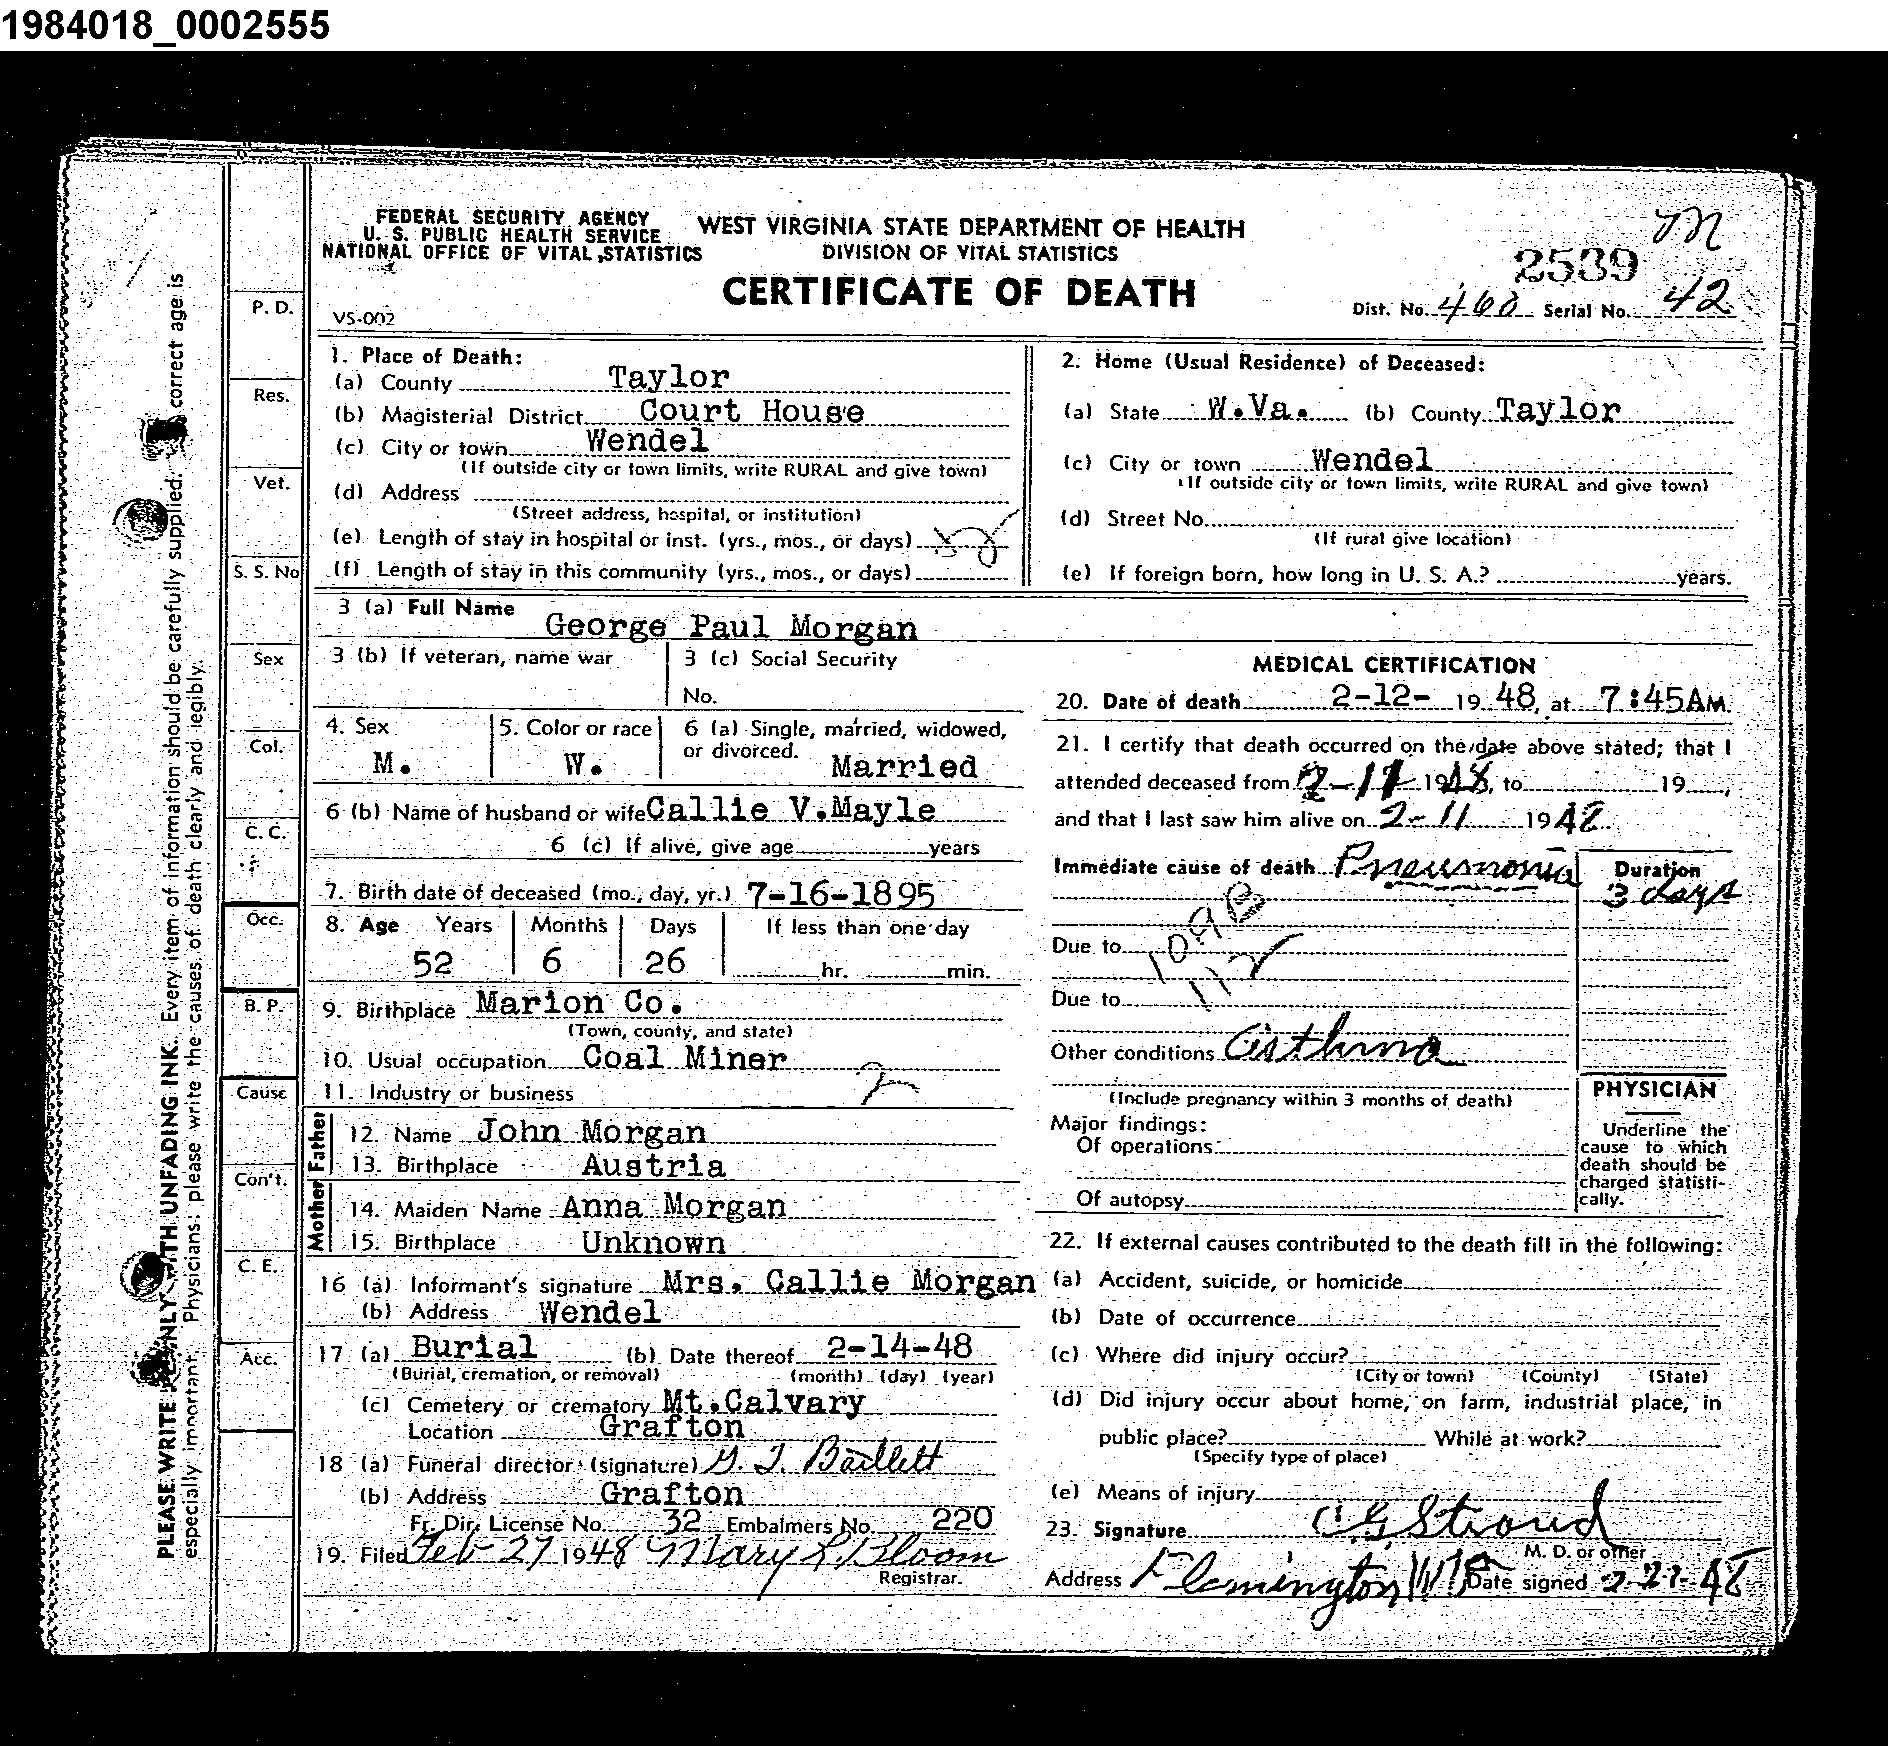 1984018_0002555
FEDERAL SECURITY AGENCY
U. S. PUBLIC HEALTH SERVICE
NATIONAL OFFICE OF VITAL STATISTICS
WEST VIRGINIA STATE DEPARTMENT OF HEALTH
DIVISION OF VITAL STATISTICS
CERTIFICATE OF DEATH
VS-002
M
2539
Dist. No. 460 Serial No. 42
PLEASE WRITE WITH UNFADING INK. Every item of information should be carefully supplied; correct age is
especially important. Physicians: please write the causes of death clearly and legibly.
P. D.
Res.
Vet.
S. S. No
Sex
Col.
C. C.
Occ.
B. P.
Cause
Con't.
C. E.
Acc.
1. Place of Death:
(a) County Taylor
(b) Magisterial District Court House
(c) City or town Wendel
(If outside city or town limits, write RURAL and give town)
(d) Address
(Street address, hospital, or institution)
(e) Length of stay in hospital or inst. (yrs., mos., or days)
(f) Length of stay in this community (yrs., mos., or days)
2. Home (Usual Residence) of Deceased:
(a) State W.Va. (b) County Taylor
(c) City or town Wendel
(If outside city or town limits, write RURAL and give town)
(d) Street No.
(If rural give location)
(e) If foreign born, how long in U. S. A.? years.
3 (a) Full Name George Paul Morgan
3 (b) If veteran, name war
3 (c) Social Security
No.
4. Sex M.
5. Color or race W.
6 (a) Single, married, widowed,
or divorced. Married
6 (b) Name of husband or wife Callie V.Mayle
6 (c) If alive, give age years
7. Birth date of deceased (mo., day, yr.) 7-16-1895
8. Age Years Months Days If less than one day
52 6 26 hr. min.
9. Birthplace Marion Co.
(Town, county, and state)
10. Usual occupation Coal Miner
11. Industry or business
Father
12. Name John Morgan
13. Birthplace Austria
Mother
14. Maiden Name Anna Morgan
15. Birthplace Unknown
16 (a) Informant's signature Mrs. Callie Morgan
(b) Address Wendel
17 (a) Burial (b) Date thereof 2-14-48
(Burial, cremation, or removal) (month) (day) (year)
(c) Cemetery or crematory Mt.Calvary
Location Grafton
18 (a) Funeral director (signature) G. T. Bartlett
(b) Address Grafton
Fr. Dir. License No. 32 Embalmers No. 220
19. Filed Feb 27 1948 Mary L. Bloom
Registrar.
MEDICAL CERTIFICATION
20. Date of death 2-12- 19 48, at 7:45AM.
21. I certify that death occurred on the date above stated; that I
attended deceased from 2-11 1948, to 19 ,
and that I last saw him alive on 2-11 1948.
Immediate cause of death Pneumonia
Duration
3 days
109B
Due to
112
Due to
Other conditions Asthma
(Include pregnancy within 3 months of death)
Major findings:
Of operations:
Of autopsy
PHYSICIAN
Underline the
cause to which
death should be
charged statisti-
cally.
22. If external causes contributed to the death fill in the following:
(a) Accident, suicide, or homicide
(b) Date of occurrence
(c) Where did injury occur?
(City or town) (County) (State)
(d) Did injury occur about home, on farm, industrial place, in
public place? While at work?
(Specify type of place)
(e) Means of injury
23. Signature C G Stroud
M. D. or other
Address Flemington W Va Date signed 2-27-48